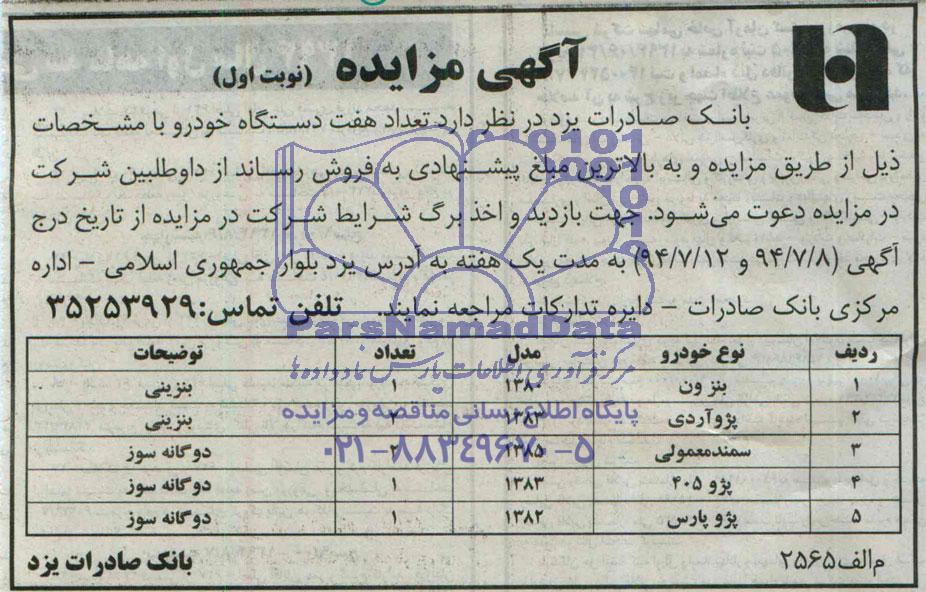 آگهی مزایده (نوبت اول)
بانک صادرات یزد در نظر دارد تعداد هفت دستگاه خودرو با مشخصات
ذیل از طریق مزایده و به بالاترین مبلغ پیشنهادی به فروش رساند از داوطلبین شرکت
در مزایده دعوت می‌شود. جهت بازدید و اخذ برگ شرایط شرکت در مزایده از تاریخ درج
آگهی (۹۴/۷/۸ و ۹۴/۷/۱۲) به مدت یک هفته به آدرس یزد بلوار جمهوری اسلامی - اداره
مرکزی بانک صادرات - دایره تدارکات مراجعه نمایند. تلفن تماس: ۳۵۲۵۳۹۲۹
ParsNamadData
مرکز فرآوری اطلاعات پارس نماد داده‌ها
پایگاه اطلاع رسانی مناقصه و مزایده
۰۲۱-۸۸۳۴۹۶۷۰-۵
ردیف نوع خودرو مدل تعداد توضیحات
۱ بنز ون ۱۳۸۰ ۱ بنزینی
۲ پژوآردی ۱۳۸۳ ۲ بنزینی
۳ سمندمعمولی ۱۳۸۵ ۲ دوگانه سوز
۴ پژو ۴۰۵ ۱۳۸۳ ۱ دوگانه سوز
۵ پژو پارس ۱۳۸۲ ۱ دوگانه سوز
م الف ۲۵۶۵ بانک صادرات یزد